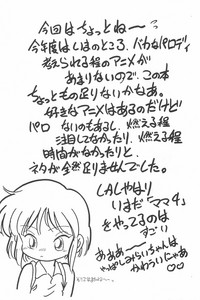 今回はちょっとね〜。
今年度はいまのところ、バカなパロディ
考えられる程のアニメが
あまりないので、この本
ちょっともの足りないかもあ。
好きなアニメはあるのだけど
パロ ないのもあるし、燃える程
注目してなかったり、燃える程
時間がなかったりと
ネタが全然足りませんでした。
しかしやはり
いまだ「ママ4」
をやってるのは
すごい
あああ〜
やっぱしみらいちゃんは
かわういじゃあ